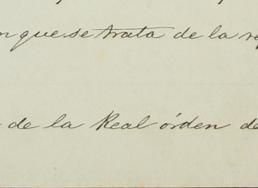 que se trata de la
de la Real órden de